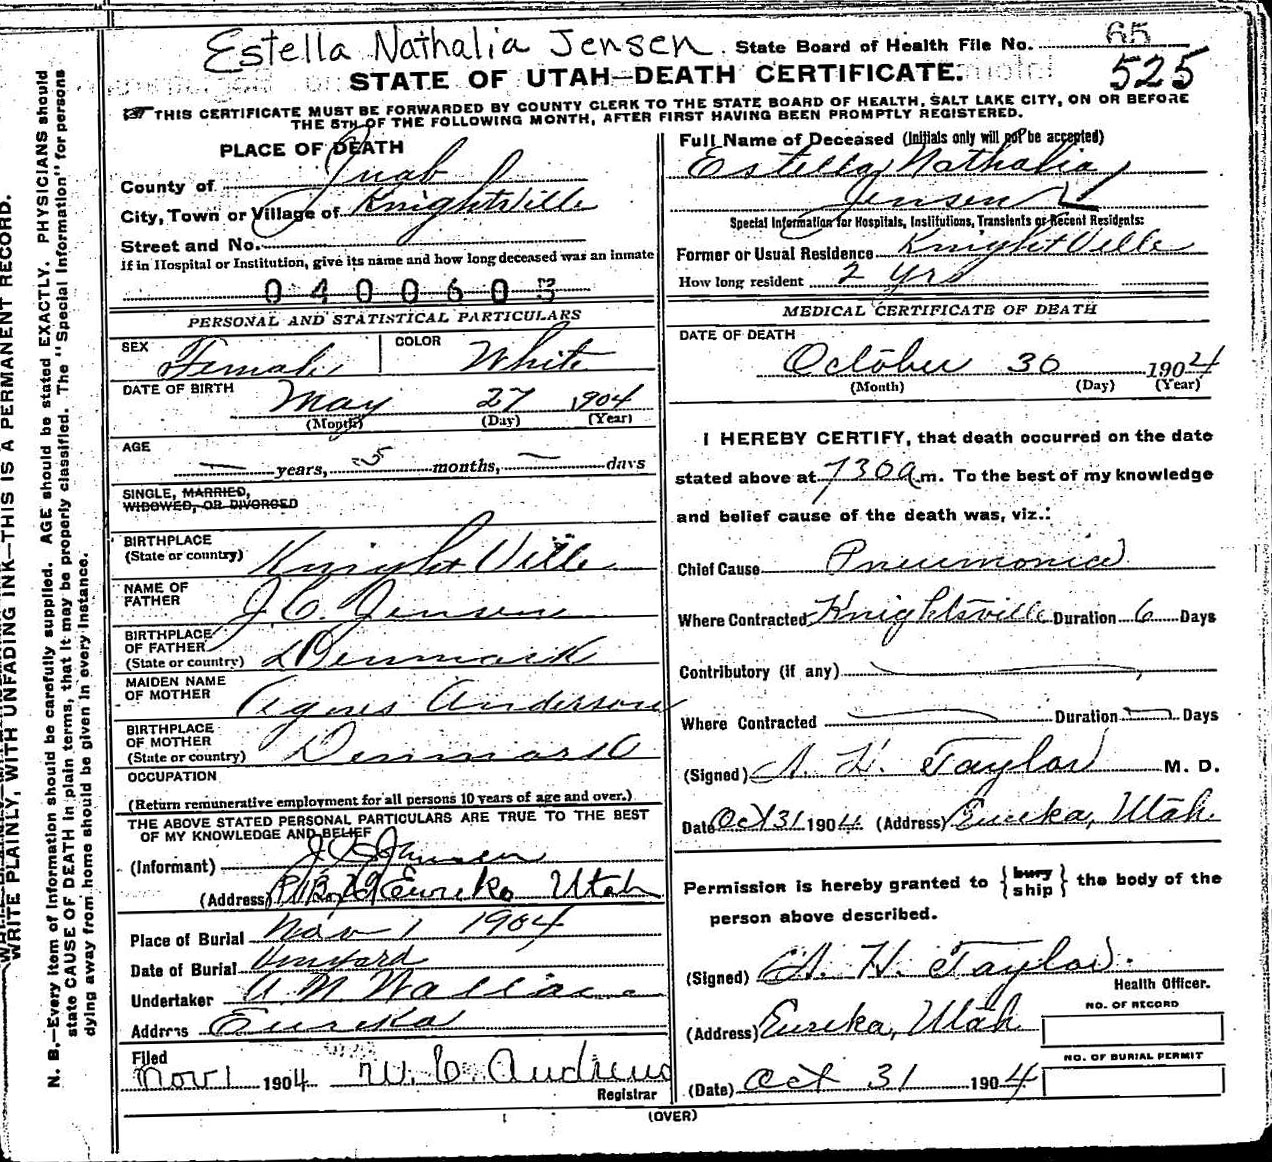 Estella Nathalia Jensen. State Board of Health File No. 65
STATE OF UTAH—DEATH CERTIFICATE. 525
THIS CERTIFICATE MUST BE FORWARDED BY COUNTY CLERK TO THE STATE BOARD OF HEALTH, SALT LAKE CITY, ON OR BEFORE
THE 5TH OF THE FOLLOWING MONTH, AFTER FIRST HAVING BEEN PROMPTLY REGISTERED.
PLACE OF DEATH
County of Juab
City, Town or Village of KnightVille
Street and No.
If in Hospital or Institution, give its name and how long deceased was an inmate
0400603
PERSONAL AND STATISTICAL PARTICULARS
SEX Female COLOR White
DATE OF BIRTH May 27 1904
(Month) (Day) (Year)
AGE
— years, 5 months, — days
SINGLE, MARRIED,
WIDOWED, OR DIVORCED
BIRTHPLACE
(State or country) KnightVille
NAME OF
FATHER J. C. Jensen
BIRTHPLACE
OF FATHER
(State or country) Denmark
MAIDEN NAME
OF MOTHER Agnes Anderson
BIRTHPLACE
OF MOTHER
(State or country) Denmark
OCCUPATION
(Return remunerative employment for all persons 10 years of age and over.)
THE ABOVE STATED PERSONAL PARTICULARS ARE TRUE TO THE BEST
OF MY KNOWLEDGE AND BELIEF
(Informant) J C Jensen
(Address) Eureka Utah
Place of Burial Nov 1 1904
Date of Burial Vinyard
Undertaker A. N. Wallace
Address Eureka
Filed
Nov 1 1904 W. C. Andrews
Registrar
Full Name of Deceased (Initials only will not be accepted)
Estella Nathalia
Jensen
Special Information for Hospitals, Institutions, Transients or Recent Residents:
Former or Usual Residence KnightVille
How long resident 2 yrs
MEDICAL CERTIFICATE OF DEATH
DATE OF DEATH
October 30 1904
(Month) (Day) (Year)
I HEREBY CERTIFY, that death occurred on the date
stated above at 730a m. To the best of my knowledge
and belief cause of the death was, viz.:
Chief Cause Pneumonia
Where Contracted Knightsville Duration 6 Days
Contributory (if any)
Where Contracted — Duration — Days
(Signed) A. H. Taylor M. D.
Date Oct 31 1904 (Address) Eureka, Utah.
Permission is hereby granted to { bury ship } the body of the
person above described.
(Signed) A. H. Taylor.
Health Officer.
(Address) Eureka, Utah NO. OF RECORD
NO. OF BURIAL PERMIT
(Date) Oct 31 1904
(OVER)
WRITE PLAINLY, WITH UNFADING INK—THIS IS A PERMANENT RECORD.
N. B.—Every item of information should be carefully supplied. AGE should be stated EXACTLY. PHYSICIANS should
state CAUSE OF DEATH in plain terms, that it may be properly classified. The "Special Information" for persons
dying away from home should be given in every instance.